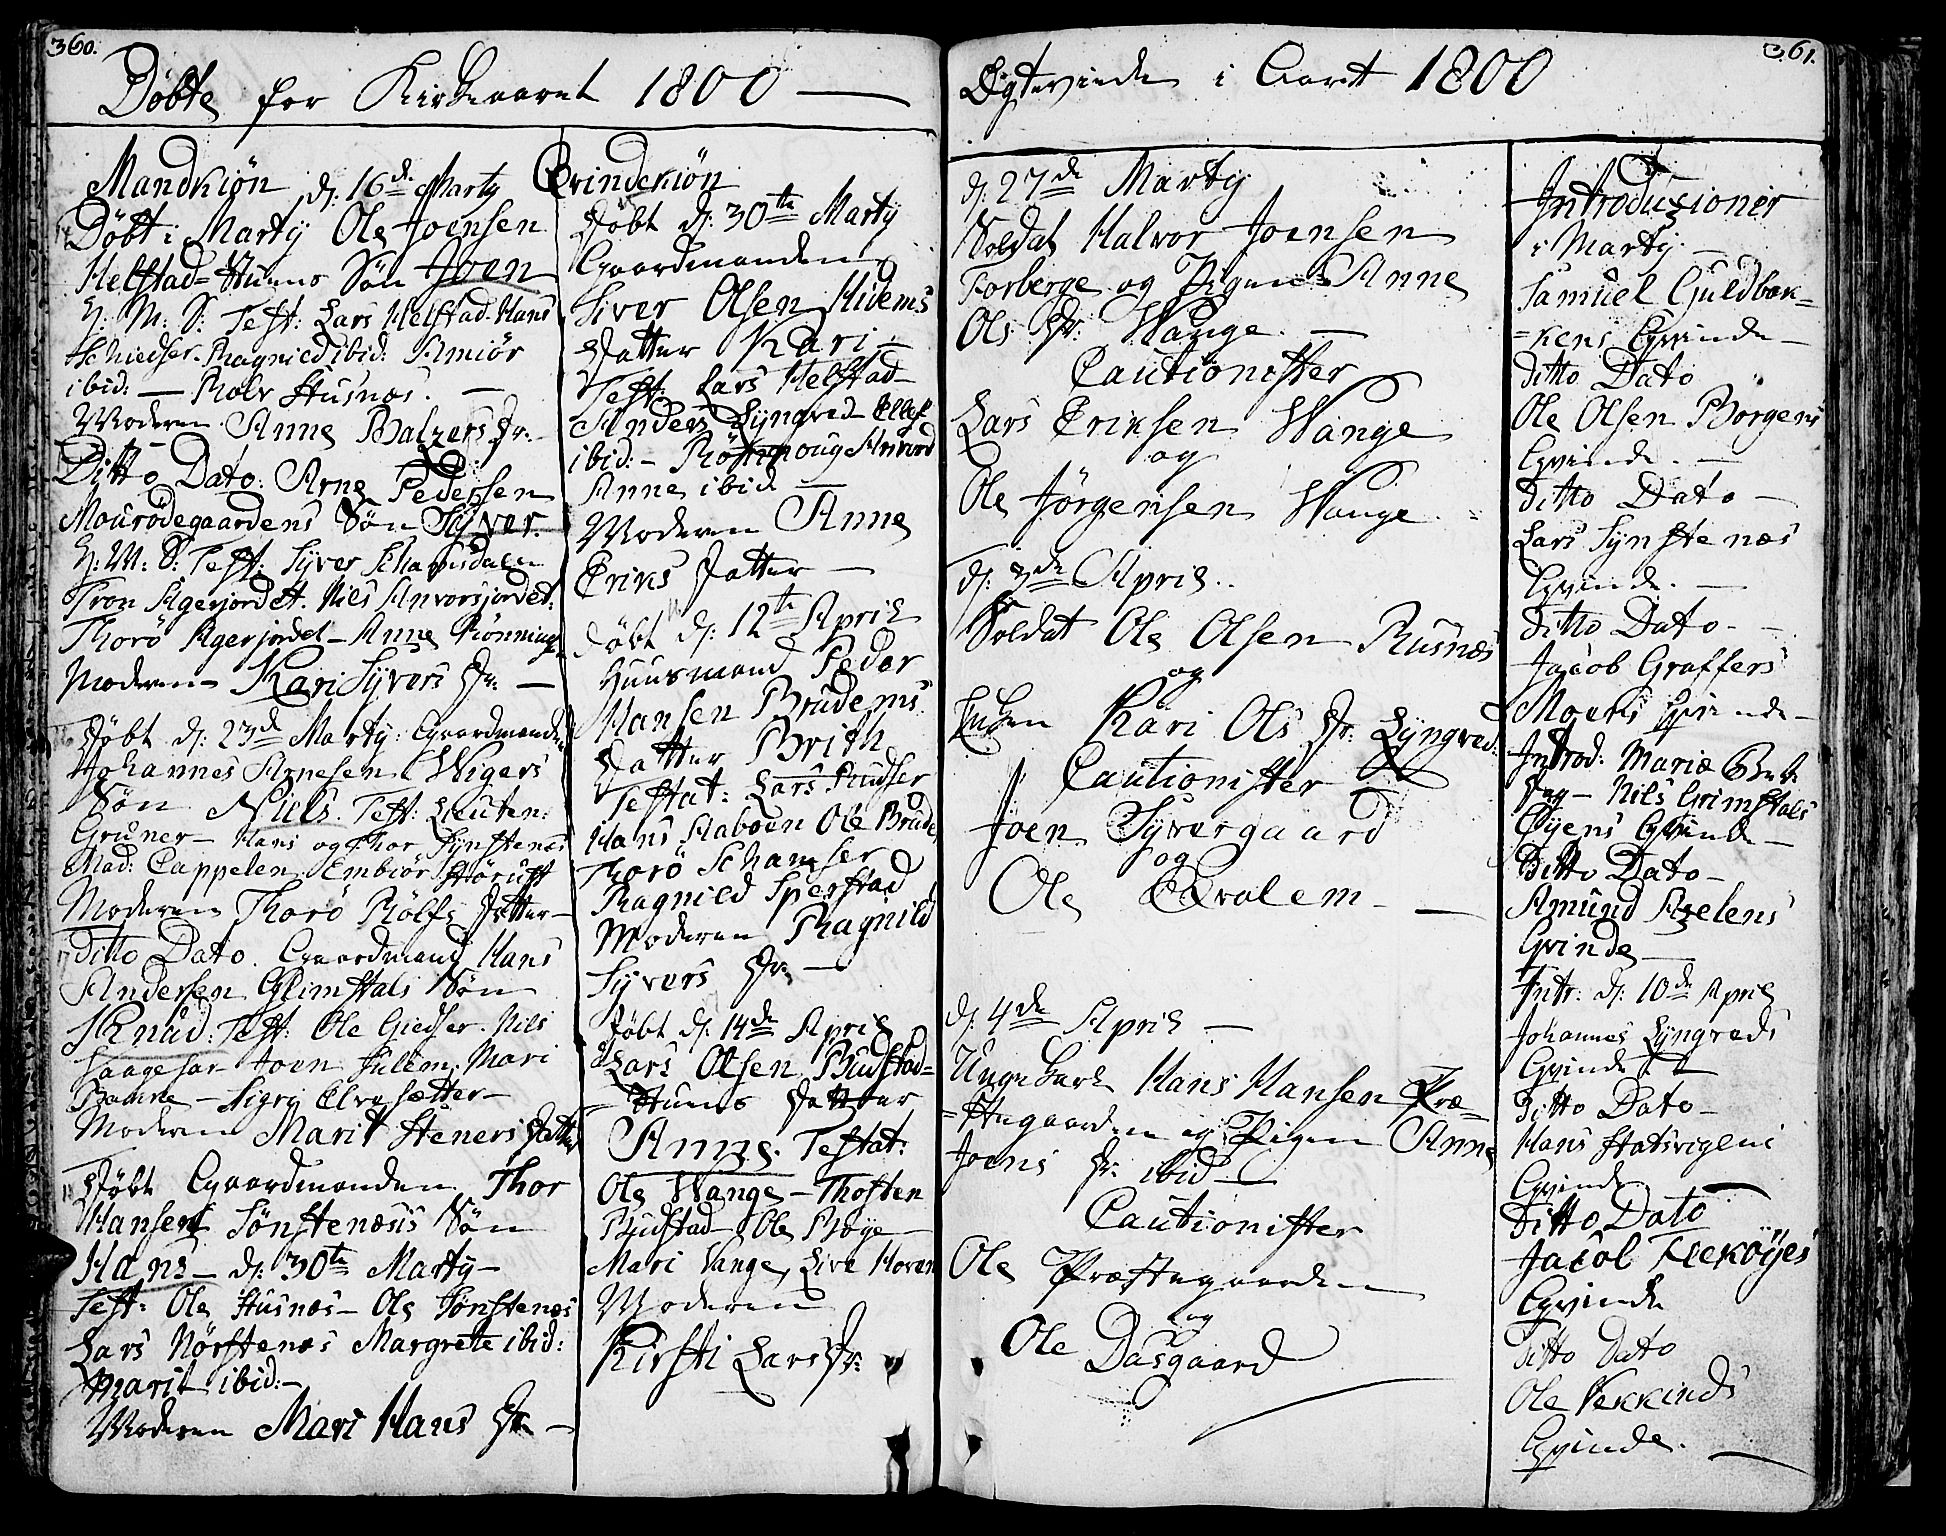 360.
Döbte for Kirkeaaret 1800
Mandkiön
d: 16de Marty
Döbt i Marty Ole Joensen
Helstad-Huuns Sön Joen
H: M: S: Test: Lars Helstad. Hans
Schiedser. Ragnild ibid: Amiör
ibid: — Rolv Husnæs. —
Moderen Anne Balzers Dr:
Ditto Dato: Arne Pedersen
Mourödegaardens Sön Syver.
H: M: S: Test: Syver
Tron Agerjordet. Nils Anvorsjordet:
Thorö Agerjordet — Anne Rönninge
Moderen Kari Syvers Dr: —
16 Döbt d: 23de Marty: Gaardmanden
Johannes Arnesen Wigers
Sön Niels. Test: Lieuten:
Gruner — Hans og Thor Synstenæs
Mad: Cappelen, Embiör
Moderen Thorö Rolfs Datter —
17 Ditto Dato. Gaardmand Hans
Andersen Glimstals Sön
Knud: Test: Ole Giedser. Nils
Joen Sulem, Mari
— Sigry Elvesætter —
Moderen Marit Steners Datter
18 Döbt Gaardmanden Thor
Hansen Sönstenæsis Sön
Hans — d: 30te Marty —
Test: Ole Husnæs — Ole Sönstenæs
Lars Nörstenæs Margrete ibid:
Marit ibid: —
Moderen Mari Hans Dr: —
Qvindekiön
Döbt d: 30te Marty
Gaardmanden
Siver Olsen Hidems
Datter Kari —
Test: Lars Helstad —
Anders Lyngved
ibid: —
Anne ibid —
Moderen Anne
Eriks Datter —
Döbt d: 12te April
Huusmand Peder
Hansen Brudems
Datter Brith
Testat: Lars Rudser
Hans Haboen Ole Brude
Thorö Schamser
Ragnild Sperstad
Moderen Ragnild
Syvers Dr: —
Döbt d: 14de April
Lars Olsen Rudstad-
Huuns Datter
Anne. Testat:
Ole Wange — Thosten
Rudstad — Ole Röye —
Mari Vange, Live Hoven
Moderen
Kirsti Lars Dr:
361.
Ægteviede i Aaret 1800
d: 27de Marty
Soldat Halvor Joensen
Forberge og Pigen Anne
Ols Dr: Wange. —
Cautionister
Lars Eriksen Wange
og
Ole Jörgensen Wange.
d: 3de April.
Soldat Ole Olsen Rusnæs
og
Enken Kari Ols Dr: Lyngved:
Cautionister
Joen Syvergaard
og
Ole Qvalem —
d: 4de April —
Unge Karl Hans Hansen Præ=
=stegaarden og Pigen Anne
Joens Dr: ibid —
Cautionister
Ole Præstegaarden
og
Ole Dasgaard
Introduzioner
i Marty —
Samuel Guldbak=
=kens Qvinde —
Ditto Dato
Ole Olsen Borgens
Qvinde. —
Ditto Dato —
Lars Synstenæs
Qvinde. —
Ditto Dato —
Jacob Graffers
Moens Qvinde —
Introd: Mariæ Beb:
Dag — Nils Grimstals
Öyens Qvinde —
Ditto Dato —
Amund Azelens
Qvinde —
Intr: d: 10de April
Johannes Lyngveds
Qvinde
Ditto Dato —
Hans Statsvigens
Qvinde —
Ditto Dato
Jacob Fleköyes
Qvinde
Ditto Dato
Ole Vekkinds
Qvinde. —